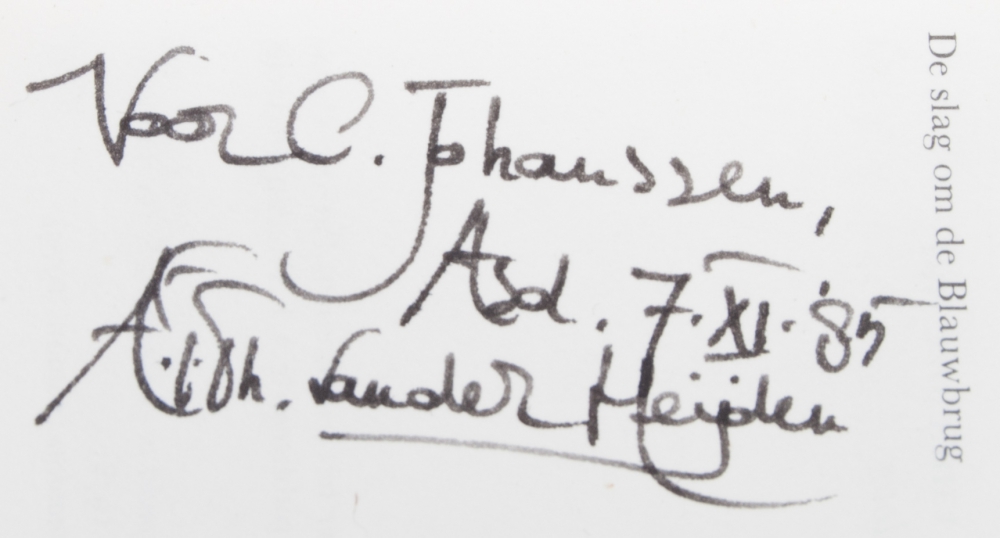 Voor C. Johanssen,
Asd. 7.XI.'85
A.F.Th. van der Heijden
De slag om de Blauwbrug